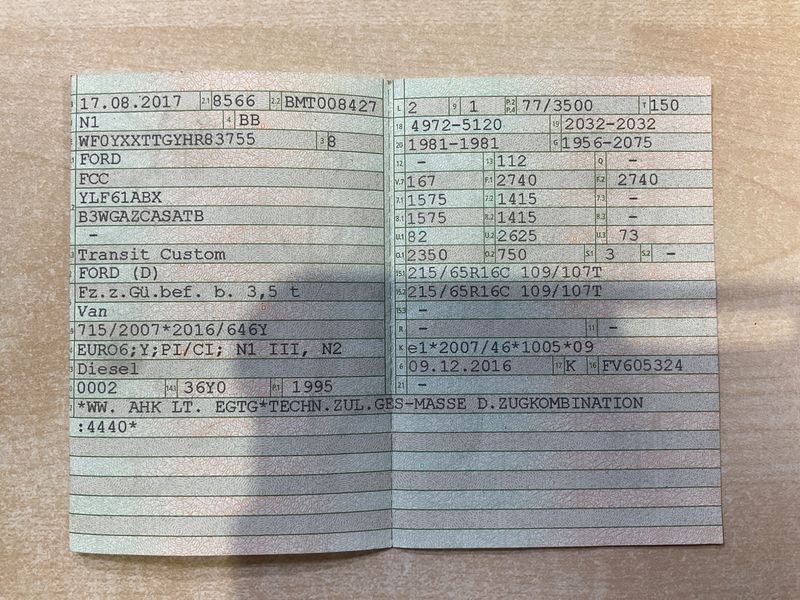 17.08.2017 2.1 8566 2.2 BMT008427
N1 4 BB
WF0YXXTTGYHR83755 3 8
FORD
FCC
YLF61ABX
B3WGAZCASATB
-
Transit Custom
FORD (D)
Fz.z.Gü.bef. b. 3,5 t
Van
715/2007*2016/646Y
EURO6;Y;PI/CI; N1 III, N2
Diesel
0002 14.1 36Y0 P.1 1995
*WW. AHK LT. EGTG*TECHN.ZUL.GES-MASSE D.ZUGKOMBINATION
:4440*
L 2 9 1 P.2 P.4 77/3500 T 150
18 4972-5120 19 2032-2032
20 1981-1981 G 1956-2075
12 - 13 112 Q -
V.7 167 F.1 2740 F.2 2740
7.1 1575 7.2 1415 7.3 -
8.1 1575 8.2 1415 8.3 -
U.1 82 U.2 2625 U.3 73
O.1 2350 O.2 750 S.1 3 S.2 -
15.1 215/65R16C 109/107T
15.2 215/65R16C 109/107T
15.3 -
R - 11 -
K e1*2007/46*1005*09
6 09.12.2016 17 K 16 FV605324
21 -